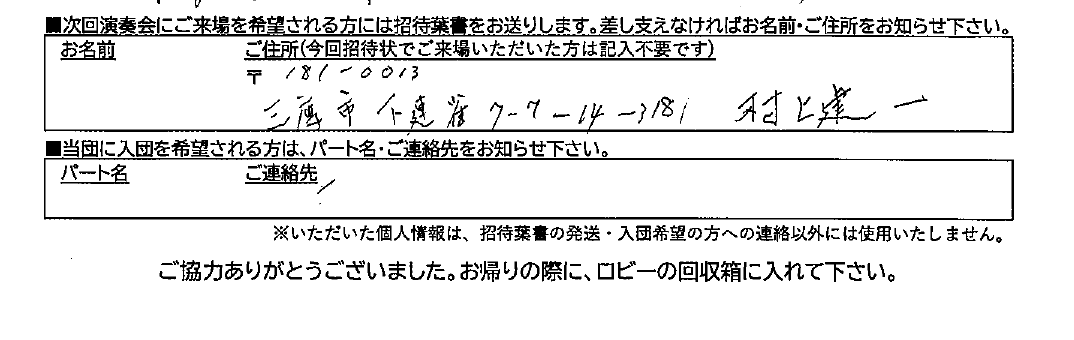 ■次回演奏会にご来場を希望される方には招待葉書をお送りします。差し支えなければお名前・ご住所をお知らせ下さい。
お名前 ご住所(今回招待状でご来場いただいた方は記入不要です)
〒 181-0013
三鷹市下連雀 7-7-14-3181 村上建一
■当団に入団を希望される方は、パート名・ご連絡先をお知らせ下さい。
パート名 ご連絡先
※いただいた個人情報は、招待葉書の発送・入団希望の方への連絡以外には使用いたしません。
ご協力ありがとうございました。お帰りの際に、ロビーの回収箱に入れて下さい。